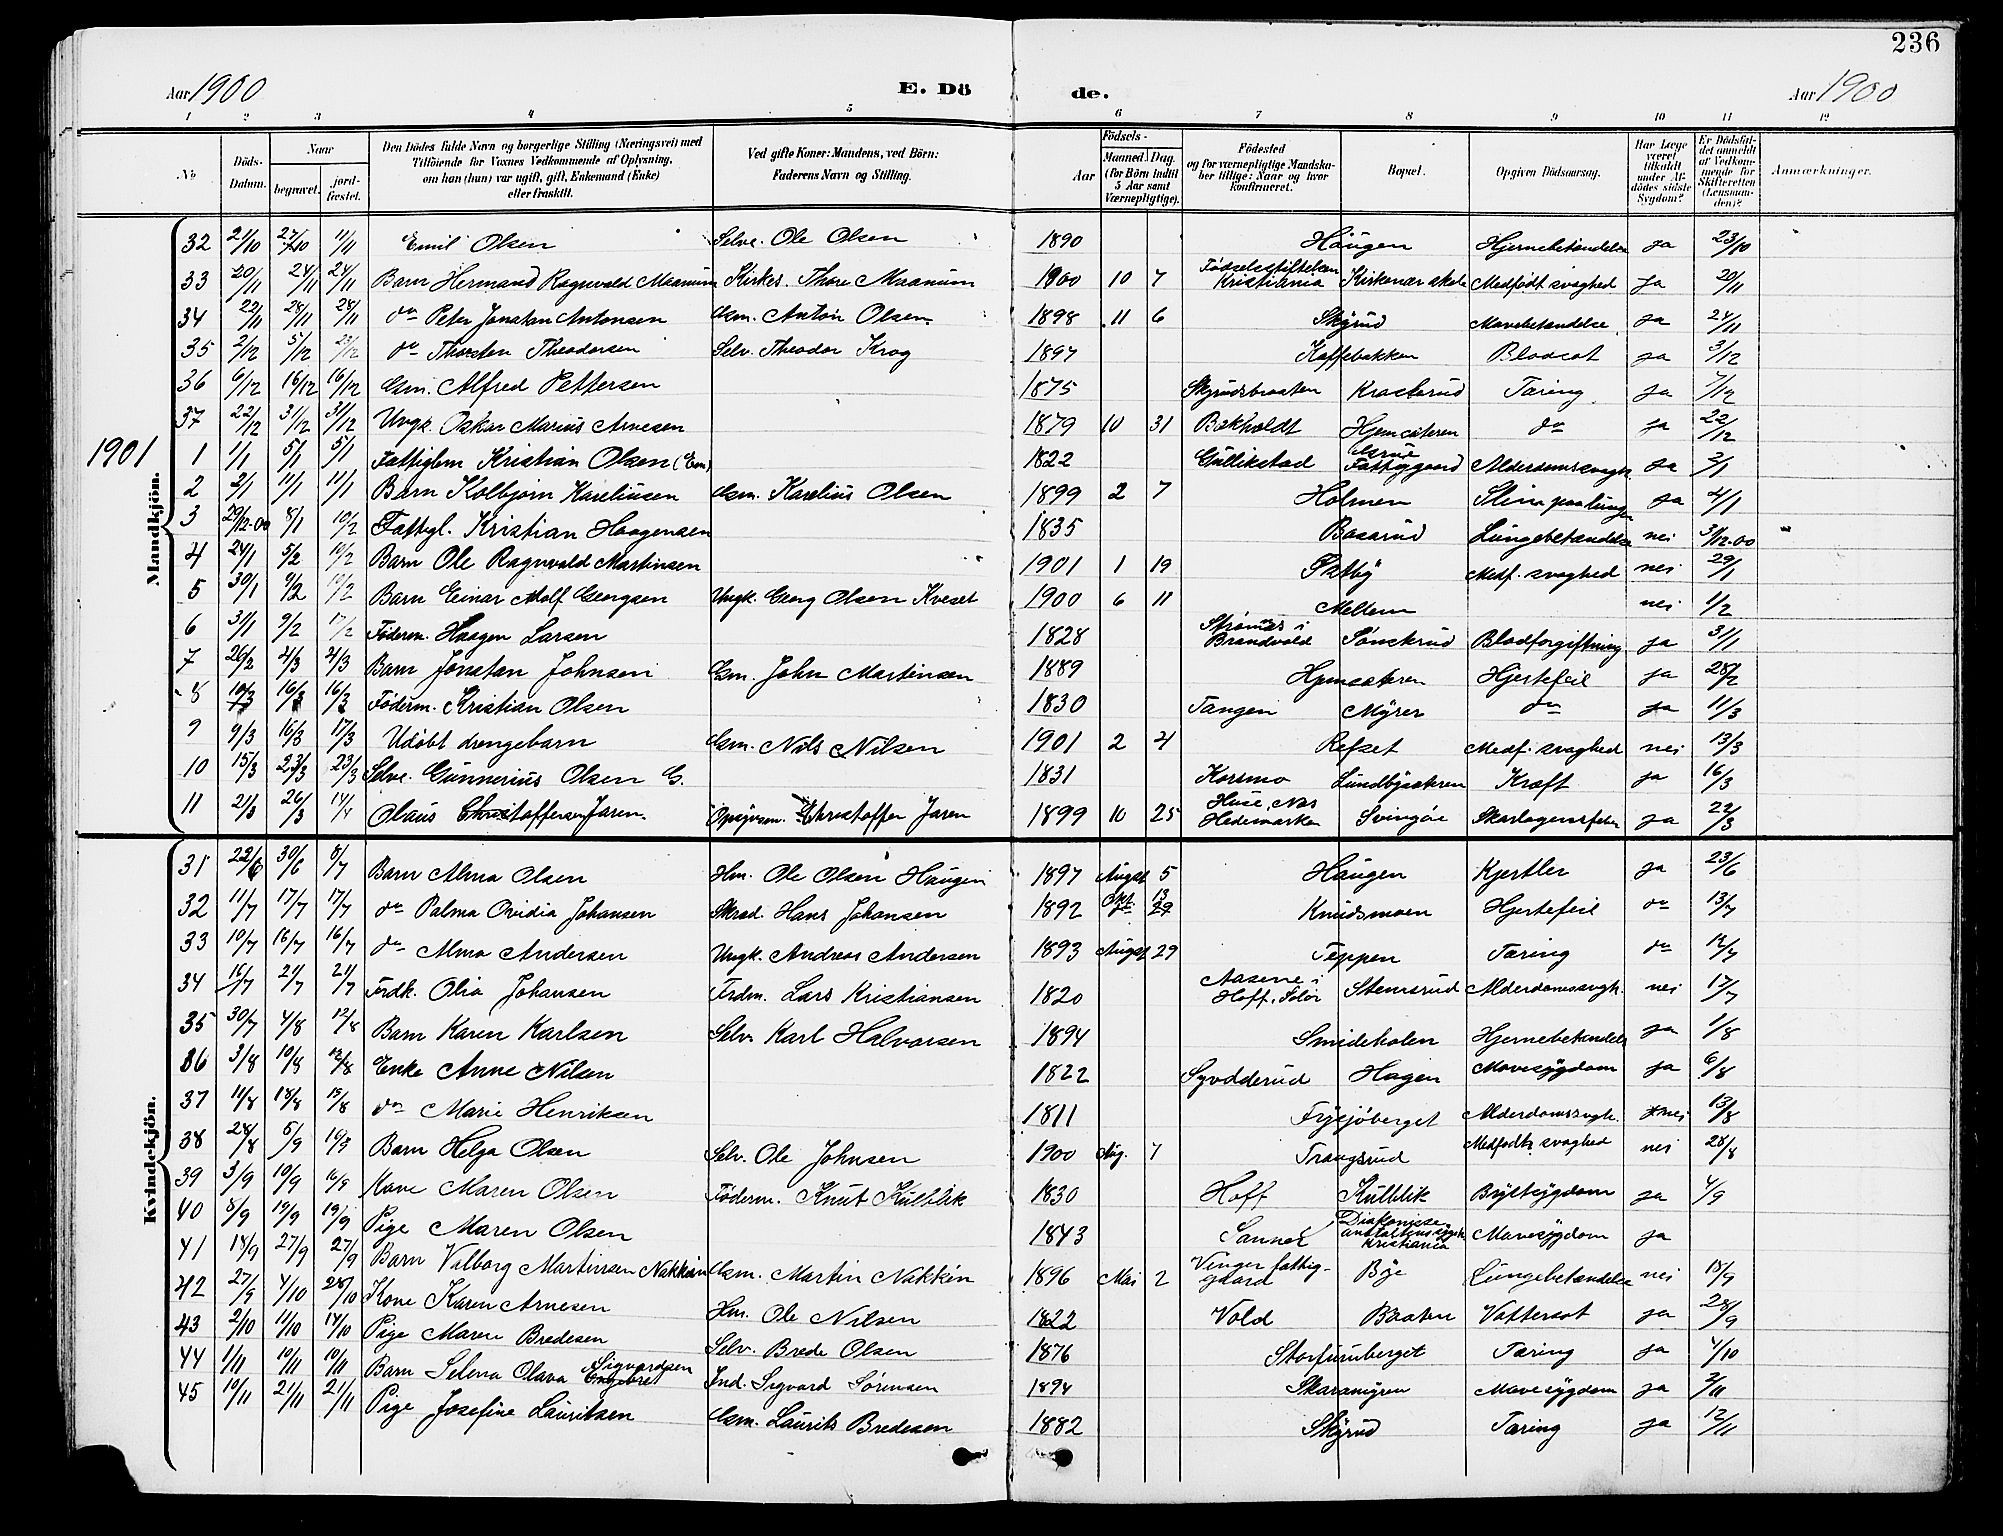 236
Aar 1900 E. Dö de. Aar 1900
1 2 3 4 5 6 7 8 9 10 11 12
No Döds-Datum. Naar begravet. jord-fæstet. Den Dödes fulde Navn og borgerlige Stilling (Næringsvei) med Tilföiende for Voxnes Vedkommende af Oplysning, om han (hun) var ugift, gift, Enkemand (Enke) eller fraskilt. Ved gifte Koner: Mandens, ved Börn: Faderens Navn og Stilling. Födsels- Aar Maaned. Dag. (for Börn indtil 5 Aar samt Værnepligtige). Födested og for værnepligtige Mandskaber tillige: Naar og hvor konfirmeret. Bopæl. Opgiven Dödsaarsag. Har Læge været tilkaldt under Afdödes sidste Sygdom? Er Dödsfaldet anmeldt af Vedkommende for Skifteretten (Lensmanden)? Anmærkninger.
Mandkjön.
32 21/10 27/10 1/11 Emil Olsen Selve. Ole Olsen 1890 Haugen Hjernebetændelse ja 23/10
33 20/11 24/11 24/11 Barn Hermand Ragnvald Maanum Kirkes. Thore Maanum 1900 10 7 Fødselsstiftelsen Kristiania Kirkenær skole Medfødt svaghed ja 20/11
34 22/11 28/11 28/11 do Peter Jonatan Antonsen Gsm. Anton Olsen 1898 11 6 Skyrud Mavebetændelse ja 24/11
35 2/12 5/12 29/12 do Thorsten Theodorsen Selv. Theodor Krog 1897 Kaffebakken Blodsot ja 3/12
36 6/12 16/12 16/12 Gsm. Alfred Pettersen 1875 Skyrudsbraaten Kracterud Tæring ja 7/12
37 22/12 31/12 31/12 Ungk. Oskar Marius Arnesen 1879 10 31 Bekholdt Hjemsæteren do ja 22/12
1901
1 1/1 5/1 5/1 Fattiglem Kristian Olsen (Em) 1822 Gullikstad Arne Fattiggaard Alderdomssvagh. ja 2/1
2 2/1 11/1 11/1 Barn Kolbjørn Kareliusen Gsm. Karelius Olsen 1899 2 7 Holmen Slim paa lunger ja 4/1
3 29/12.00 8/1 10/2 Fattigl. Kristian Haagensen 1835 Basarud Lungebetændelse nei 31/12.00
4 24/1 5/2 10/2 Barn Ole Ragnvald Martinsen 1901 1 19 Sætby Medf. svaghed nei 29/1
5 30/1 9/2 10/2 Barn Einar Adolf Georgsen Ungk. Georg Olsen Kveset 1900 6 11 Mellem nei 1/2
6 31/1 9/2 17/2 Føderm. Haagen Larsen 1828 Strømnes i Brandvold Sønsterud Blodforgiftning ja 31/1
7 26/2 4/3 4/3 Barn Jonatan Johnsen Gsm. John Martinsen 1889 Hjemsæteren Hjertefeil ja 28/2
8 10/3 16/3 16/3 Føderm. Kristian Olsen 1830 Tangen Myrer do ja 11/3
9 9/3 16/3 17/3 Udøbt drengebarn Gsm. Nils Nilsen 1901 2 4 Refset Medf. svaghed nei 13/3
10 15/3 23/3 23/3 Selve. Gunnerius Olsen G. 1831 Korsmo Lundbysæteren Kræft ja 16/3
11 21/3 26/3 14/4 Olaus Christoffersen Jaren. Opsynsm. Christoffer Jaren 1899 10 25 Huse, Nes Hedemarken Svingøie Skarlagensfeber ja 22/3
Kvindekjön.
31 22/6 30/6 8/7 Barn Alma Olsen Hm. Ole Olsen Haugen 1897 August 5 Haugen Kjertler ja 23/6
32 11/7 17/7 17/7 do Palma Ovidia Johansen Skræd. Hans Johansen 1892 Okt. 13 do 29 Knudsmoen Hjertefeil do 13/7
33 10/7 16/7 16/7 do Alma Andersen Ungk. Andreas Andersen 1893 August 29 Teppen Tæring do 12/7
34 16/7 21/7 21/7 Frdk. Olia Johansen Frdm. Lars Kristiansen 1820 Aaserne i Hoff, Solør Stemsrud Alderdomssvagh. nei 17/7
35 30/7 4/8 12/8 Barn Karen Karlsen Selv Karl Halvorsen 1894 Smideholen Hjernebetændelse ja 1/8
36 3/8 10/8 12/8 Enke Anne Nilsen 1822 Syvdderud Hagen Mavesygdom ja 6/8
37 11/8 18/8 18/8 do Marie Henriksen 1811 Frysjøberget Alderdomssvagh. nei 13/8
38 28/8 5/9 10/9 Barn Helga Olsen Selv. Ole Johnsen 1900 Aug. 7 Trangsrud Medfødt svaghed nei 28/8
39 3/9 10/9 16/9 Kone Maren Olsen Føderm. Knut Kulblik 1830 Hoff Kulblik Brystsygdom ja 4/9
40 8/9 19/9 19/9 Pige Maren Olsen 1843 Sanner Diakonisseanstaltens sygeh. Kristiania Mavesygdom ja
41 14/9 27/9 27/9 Barn Valborg Martinsen Nakkén Gsm. Martin Nakkén 1896 Mai 2 Vinger fattiggaard Bye Lungebetændelse nei 18/9
42 27/9 4/10 28/10 Kone Karen Arnesen Hm. Ole Nilsen 1822 Vold Baaten Vattersot ja 28/9
43 2/10 11/10 14/10 Pige Maren Bredesen Selv. Brede Olsen 1876 Storfuruberget Tæring ja 4/10
44 1/11 10/11 10/11 Barn Selma Olava Sigvardsen Ind. Sigvard Sørensen 1894 Skaramyren Mavesygdom ja 2/11
45 10/11 21/11 21/11 Pige Josefine Lauritsen Gsm. Laurits Bredesen 1882 Skyrud Tæring ja 12/11